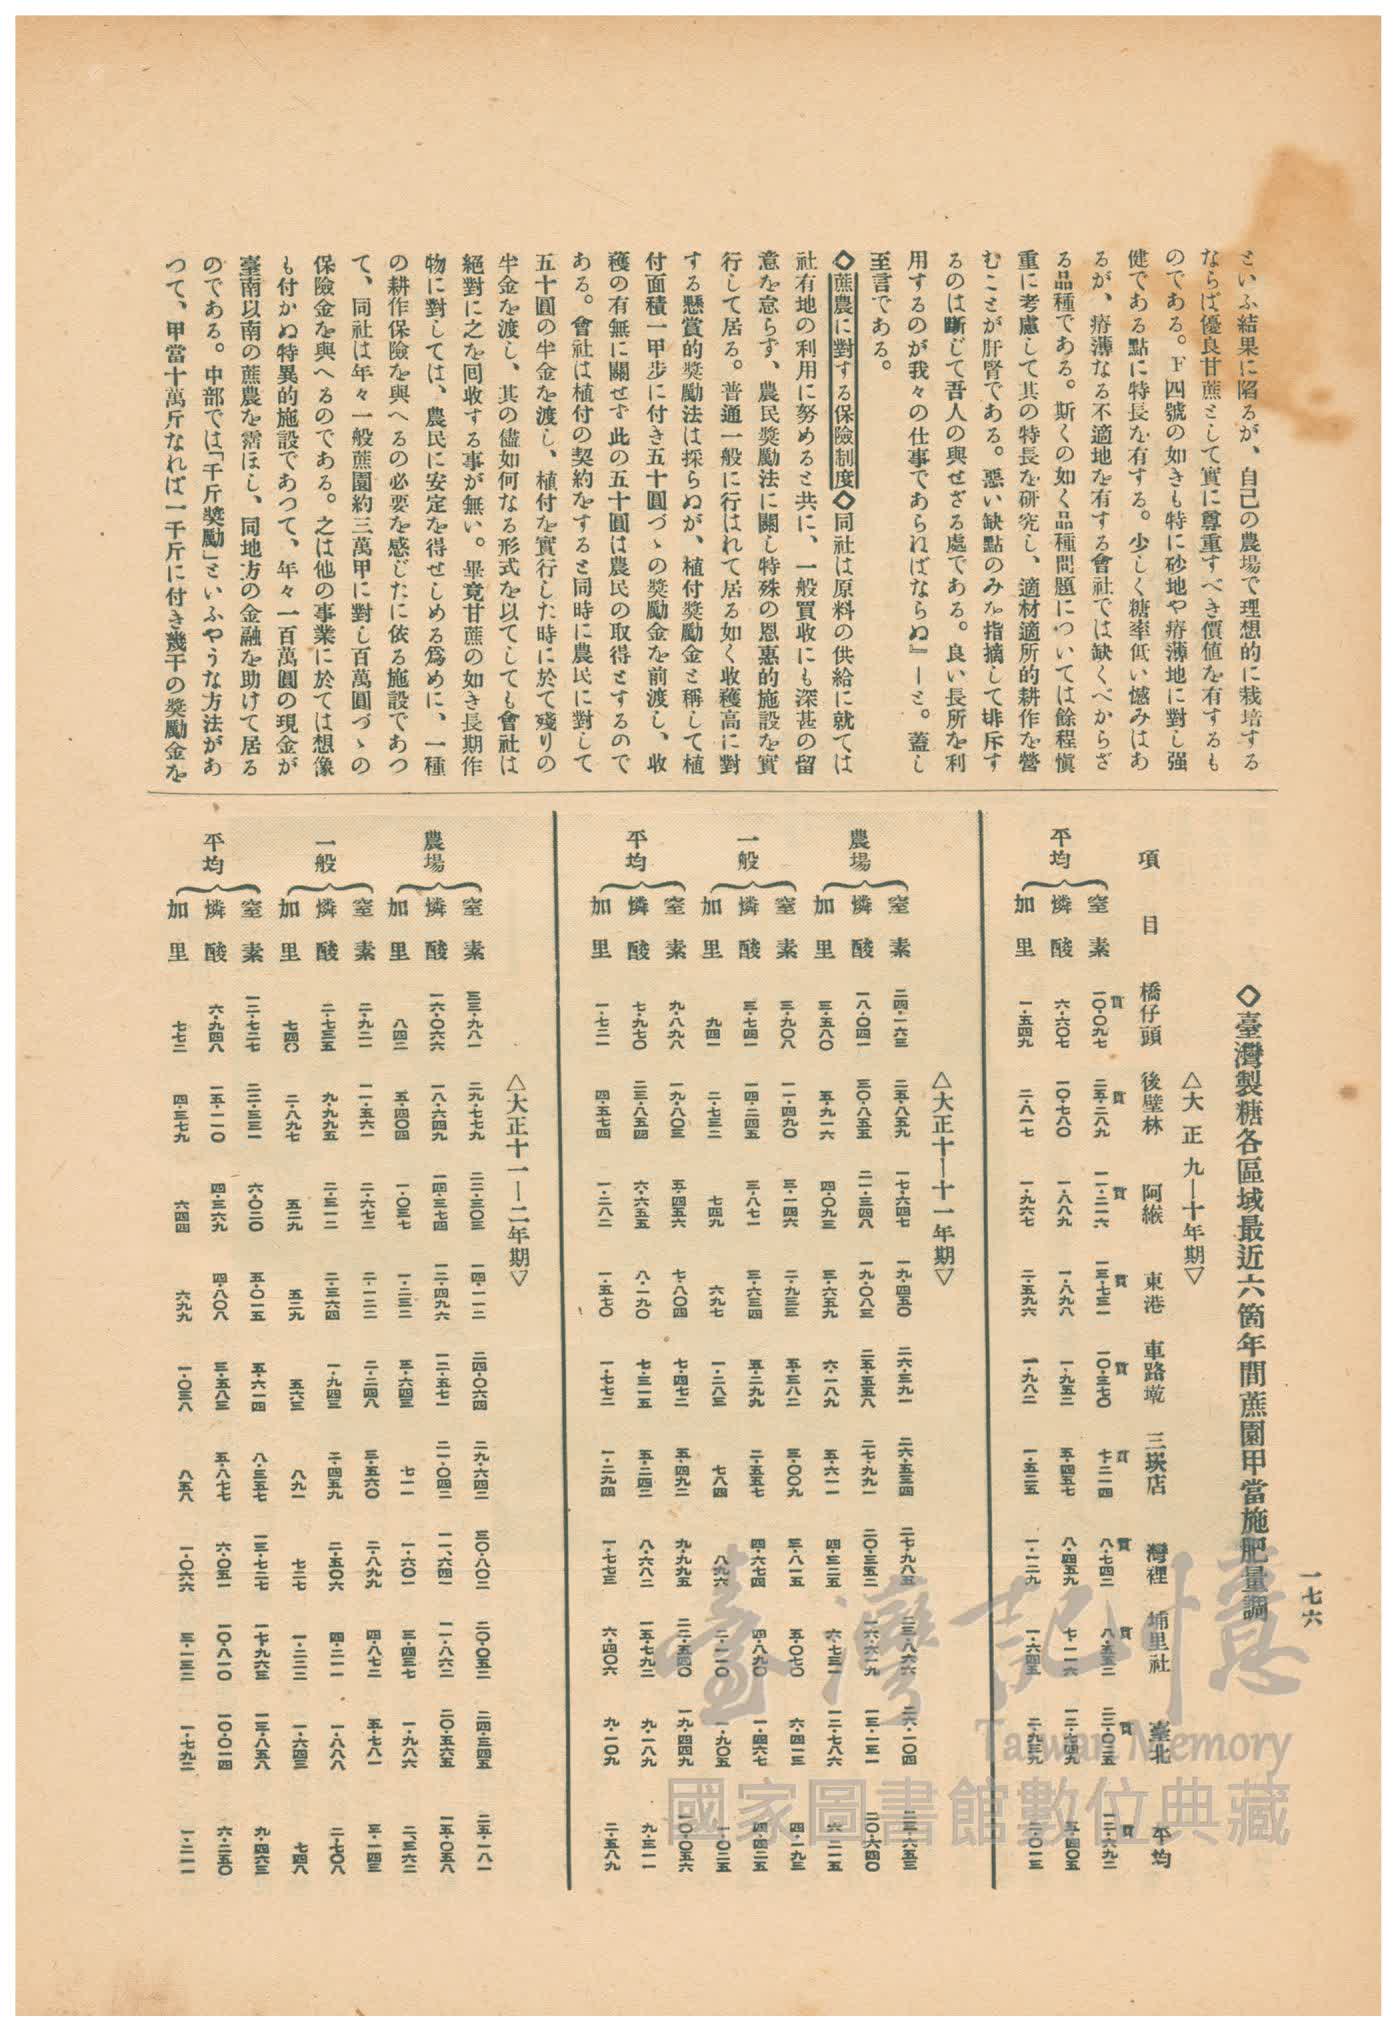 といふ結果に陷るが、自己の農場で理想的に栽培する
ならば優良甘蔗として實に尊重すべき價値を有するも
のである。F四號の如きも特に砂地や瘠薄地に對し强
健である點に特長を有する。少しく糖率低い憾みはあ
るが、瘠薄なる不適地を有する會社では缺くべからざ
る品種である。斯くの如く品種問題については餘程愼
重に考慮して其の特長を硏究し、適材適所的耕作を營
むことが肝腎である。惡い缺點のみを指摘して排斥す
るのは斷じて吾人の與せざる處である。良い長所を利
用するのが我々の仕事であらねばならぬ』―と。蓋し
至言である。
◇蔗農に對する保險制度◇同社は原料の供給に就ては
社有地の利用に努めると共に、一般買收にも深甚の留
意を怠らず、農民奬勵法に關し特殊の恩惠的施設を實
行して居る。普通一般に行はれて居る如く收穫高に對
する懸賞的奬勵法は採らぬが、植付奬勵金と稱して植
付面積一甲步に付き五十圓づゝの奬勵金を前渡し、收
穫の有無に關せず此の五十圓は農民の取得とするので
ある。會社は植付の契約をすると同時に農民に對して
五十圓の半金を渡し、植付を實行した時に於て殘りの
半金を渡し、其の儘如何なる形式を以てしても會社は
絕對に之を回收する事が無い。畢竟甘蔗の如き長期作
物に對しては、農民に安定を得せしめる爲めに、一種
の耕作保險を與へるの必要を感じたに依る施設であつ
て、同社は年々一般蔗園約三萬甲に對し百萬圓づゝの
保險金を與へるのである。之は他の事業に於ては想像
も付かぬ特異的施設であつて、年々一百萬圓の現金が
臺南以南の蔗農を霑ほし、同地方の金融を助けて居る
のである。中部では「千斤奬勵」といふやうな方法があ
つて、甲當十萬斤なれば一千斤に付き幾干の奬勵金を
一七六
◇臺灣製糖各區域最近六箇年間蔗園甲當施肥量調
△大正九―十年期▽
項目 橋仔頭 後壁林 阿緱 東港 車路墘 三崁店 灣裡 埔里社 臺北 平均
平均
窒素 一〇・〇九七 二五・二八九 一一・二一六 一三・七三一 一〇・三七〇 七・二一四 八・七四二 八・五五二 二二・〇三五 一二・六九二
燐酸 六・六〇七 一〇・七八〇 一・八八九 一・八九八 一・九五二 五・四五七 八・四五九 七・一一六 一二・七四九 五・四〇五
加里 一・五四九 二・八一七 一・九六七 二・五九六 一・九八二 一・五二五 一・一二九 一・六四五 二・九三九 二・〇一三
△大正十―十一年期▽
農場
窒素 二四・一六三 二五・八五九 一七・六四七 一九・四五〇 二六・三九一 二六・五三四 二七・九八五 二三・八六六 二六・一〇四 二三・六五三
燐酸 一八・〇四一 三〇・八五五 二一・三四八 一九・〇八三 二五・五五八 二七・九九一 二〇・三五二 一六・六一九 一三・一五一 二〇・六四〇
加里 三・五八〇 五・九一六 四・〇九三 三・六五九 六・一八九 五・六一一 四・三二五 六・七三一 一二・七八六 六・二一五
一般
窒素 三・九〇八 一一・四九〇 三・一四六 二・九三三 五・三八二 三・〇〇九 三・八一五 五・〇七〇 六・四一三 四・一九三
燐酸 三・七四一 一四・二四五 三・八七一 三・六三四 五・二九九 二・五五七 四・六七四 四・八九〇 一・四六七 四・四二五
加里 九四一 二・七三二 七四九 六九七 一・二八三 七八四 八九六 二・一一〇 一・九〇五 一・〇二五
平均
窒素 九・八九八 一九・八〇三 五・四五六 七・八〇四 七・四七二 五・四九二 九・九九五 二二・五四〇 一九・四四九 一〇・〇五六
燐酸 七・九七〇 二三・八五四 六・六五五 八・一九〇 七・三一五 五・二四二 八・六八二 一五・七九二 九・一八九 九・三一一
加里 一・七二一 四・五七四 一・二八二 一・五七〇 一・七七二 一・二九四 一・七七三 六・四〇六 九・一〇九 二・五八九
△大正十一―二年期▽
農場
窒素 三三・九八一 二九・七七九 二二・三〇三 一四・一一二 二四・〇六四 二九・六四二 三〇・八〇二 二〇・〇五二 二四・三四五 二五・一八一
燐酸 一六・〇六六 一八・六四九 一四・三七四 一二・四九六 一二・五七一 二一・〇四二 一一・六四一 一一・八六二 二〇・五六五 一五・〇五八
加里 八四二 五・四〇四 一・〇三七 一・二三二 三・六四三 七一一 一・六〇一 三・四三七 一・九八六 二・三六二
一般
窒素 二・九二一 一一・五六一 二・六七二 二・一二二 二・二四八 三・五六〇 二・八九九 四・八七二 五・七八一 三・一四三
燐酸 二・七三五 九・九九五 二・三一二 二・三六四 一・九四三 二・四五九 二・五〇六 四・二一一 一・八八八 二・七〇八
加里 七四〇 二・八九七 五二九 五二九 五六三 八九一 七二七 一・二二二 一・六四三 七四八
平均
窒素 一二・七二七 二二・三三一 六・〇二〇 五・〇一五 五・六一四 八・三五七 一三・七二七 一七・九六三 一三・八五八 九・四六三
燐酸 六・九四八 一五・一一〇 四・三六九 四・八〇八 三・五八三 五・八七七 六・〇五一 一〇・八一〇 一〇・〇一四 六・二五〇
加里 七七二 四・三七九 六四四 六九九 一・〇三八 八五八 一・〇六六 三・一五二 一・七九二 一・二一一
臺灣記憶
Taiwan Memory
國家圖書館數位典藏